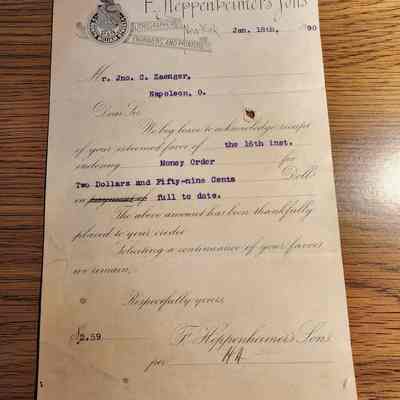 F. Heppenheimer's Sons
LITHOGRAPHERS
ENGRAVERS, AND PRINTERS.
New York Jan. 18th, 90
Mr. Jno. C. Saenger,
Napoleon, O.
Dear Sir
We beg leave to acknowledge receipt
of your esteemed favor of the 16th inst.
enclosing Money Order for
Two Dollars and Fifty-nine Cents Dolls
in payment of full to date.
The above amount has been thankfully
placed to your credit
Soliciting a continuance of your favors
we remain,
Respectfully yours,
$2.59 F. Heppenheimer's Sons
per